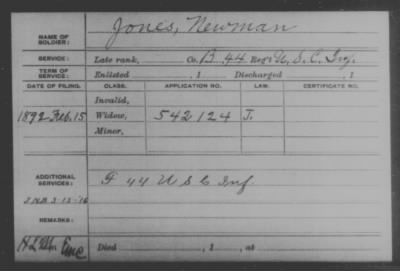 Jones, Newman
NAME OF SOLDIER:
SERVICE: Late rank, Co. B. 44 Reg't U. S. C. Inf.
TERM OF SERVICE: Enlisted , 1 Discharged , 1
DATE OF FILING. CLASS. APPLICATION NO. LAW. CERTIFICATE NO.
Invalid,
1892 Feb. 15 Widow, 542124 J.
Minor,
ADDITIONAL SERVICES: F 44 U S C Inf.
REMARKS:
Died , 1 , at